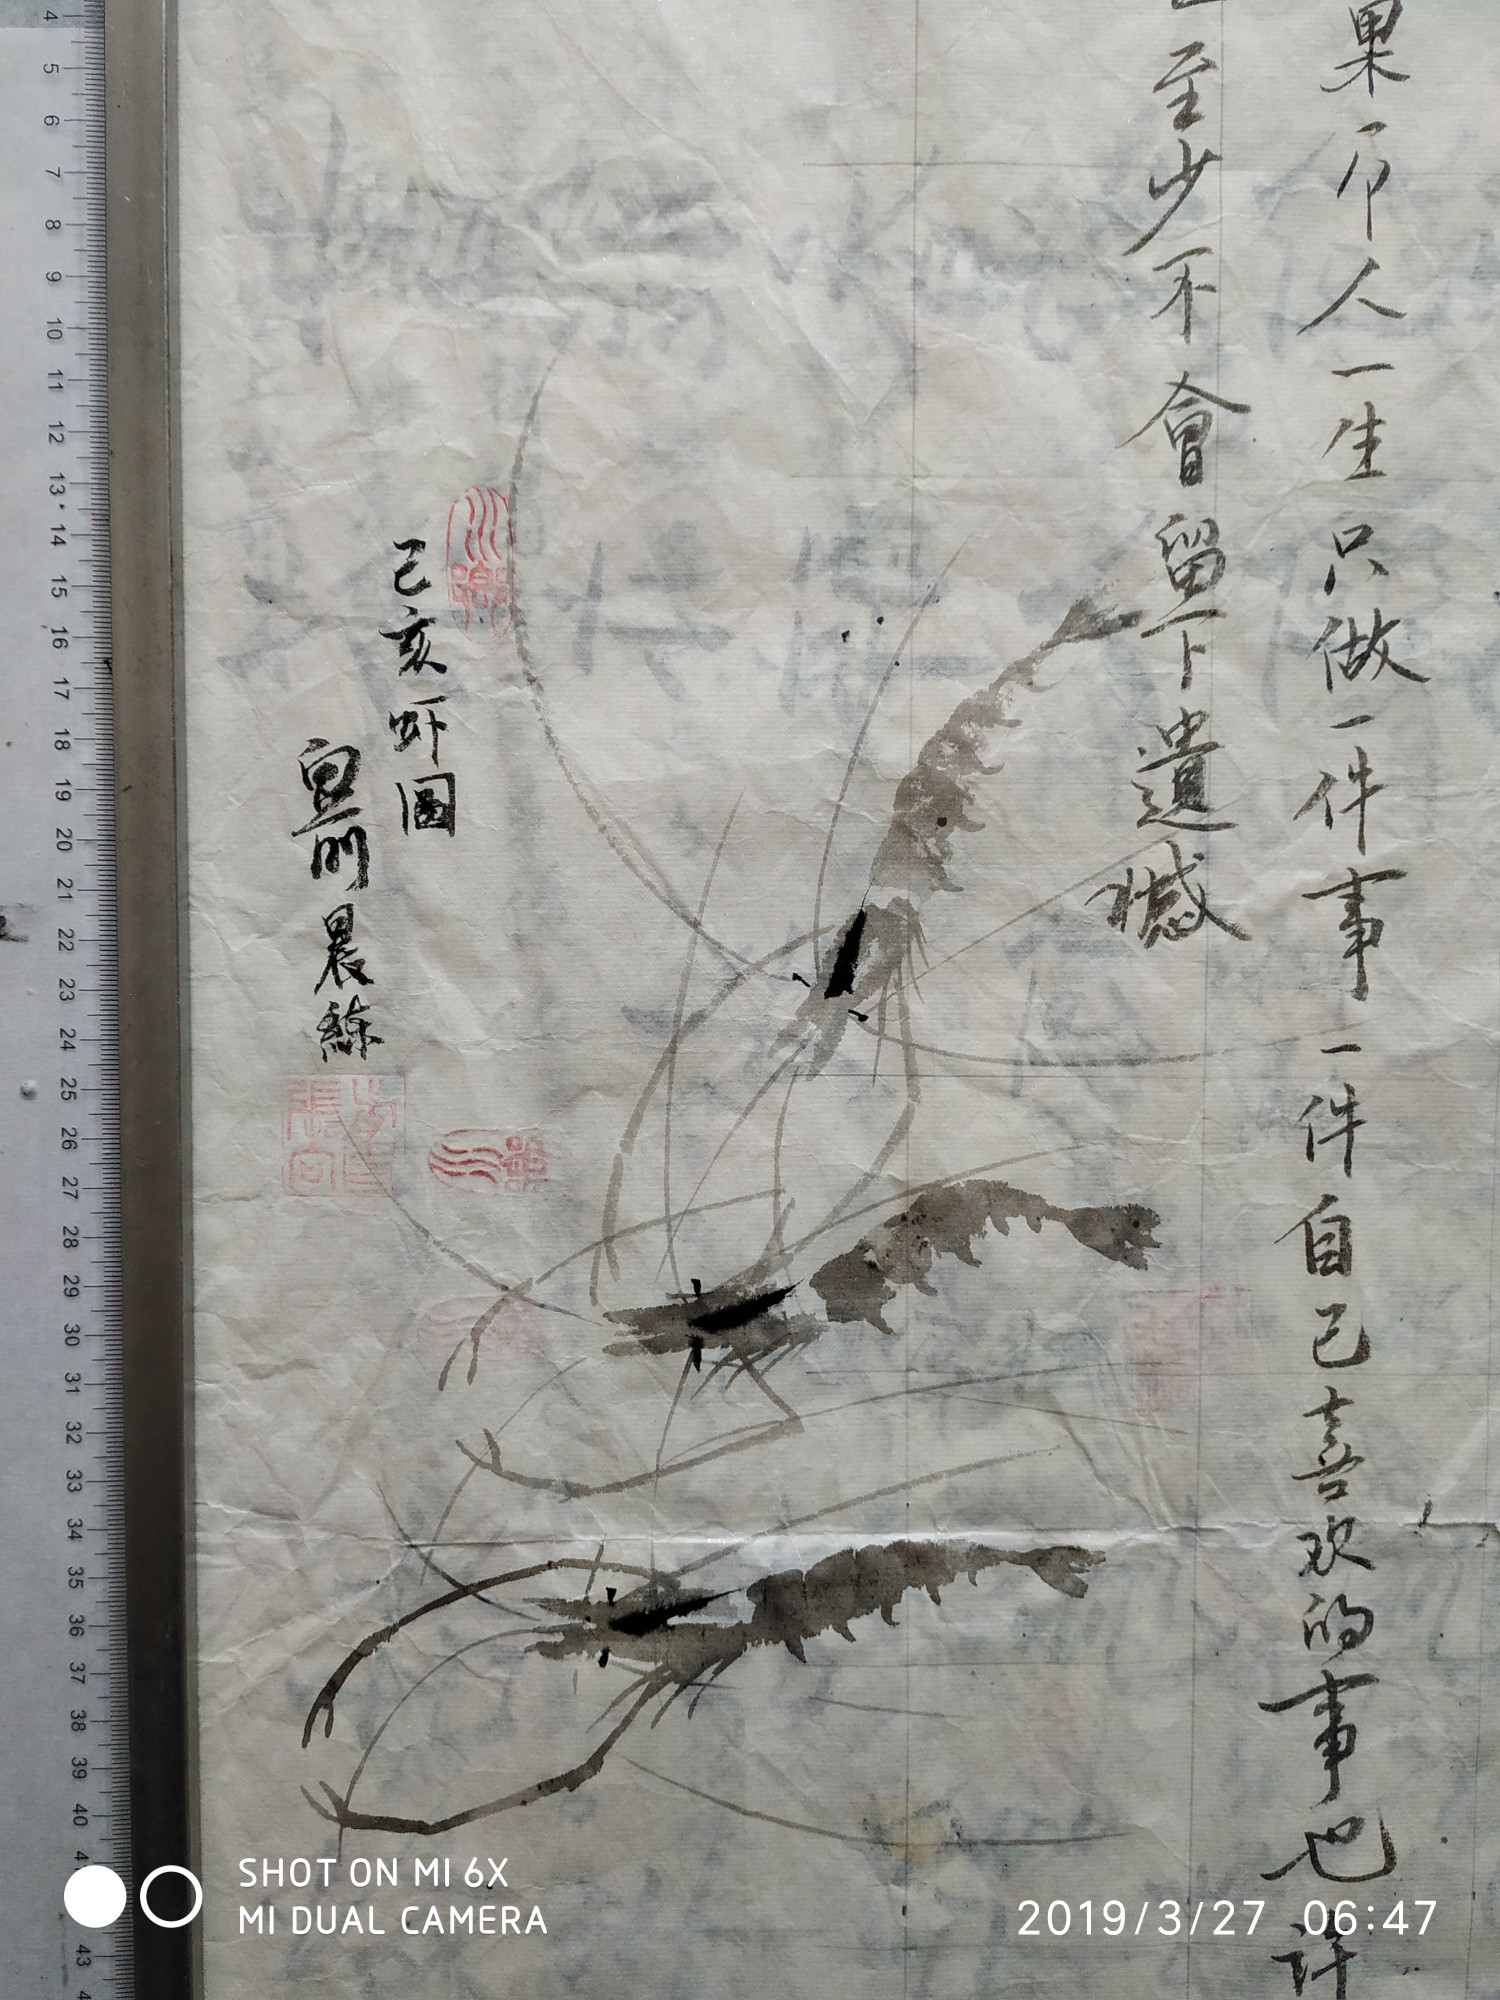 果个人一生只做一件事一件自己喜欢的事也许
至少不會留下遺憾
己亥虾图
晨練
4
5
6
7
8
9
10
11
12
13
14
15
16
17
18
19
20
21
22
23
24
25
26
27
28
29
30
31
32
33
34
35
36
37
38
39
40
43
SHOT ON MI 6X
MI DUAL CAMERA
2019/3/27 06:47